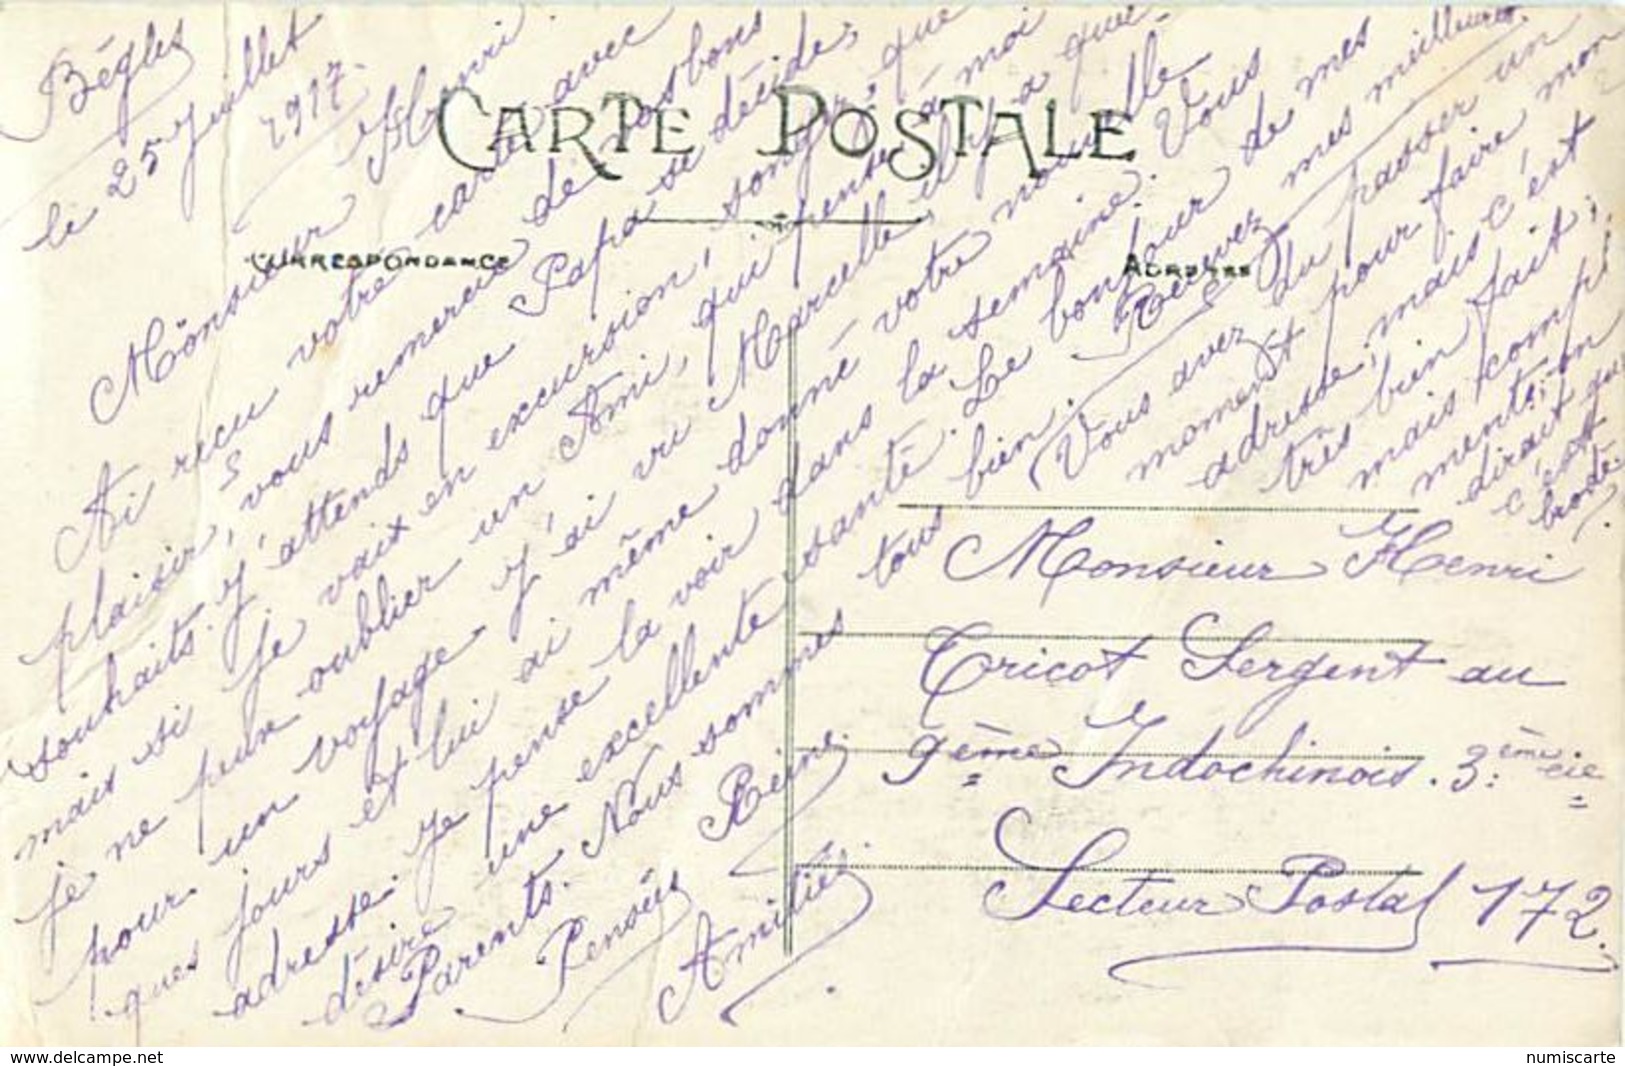 Bègles
le 25 Juillet
1917.
Monsieur Henri.
CARTE POSTALE
CORRESPONDANCE
ADRESSE
Ai reçu votre carte avec
plaisir, vous remercie de vos bons
souhaits. J'attends que Papa se décide;
mais si je vaix en excursion, songez que
je ne peux oublier un Ami, qui pense à moi
pour un voyage. J'ai vu Marcelle, il y a quel-
ques jours et lui ai même donné votre nouvelle
adresse. Je pense la voir dans la semaine. Vous
désire une excellente santé. Le bonjour de mes
Parents. Nous sommes tous bien. Recevez mes meilleures
Pensées
Amitiés
Reine
Vous avez du passer un
moment pour faire mon
adresse, mais c'est
très bien fait;
mais compli
ments, on
dirait que
c'est
brodé.
Monsieur Henri
Tricot Sergent au
9ème Indochinois. 3ème cie
Secteur Postal 172.
www.delcampe.net
numiscarte